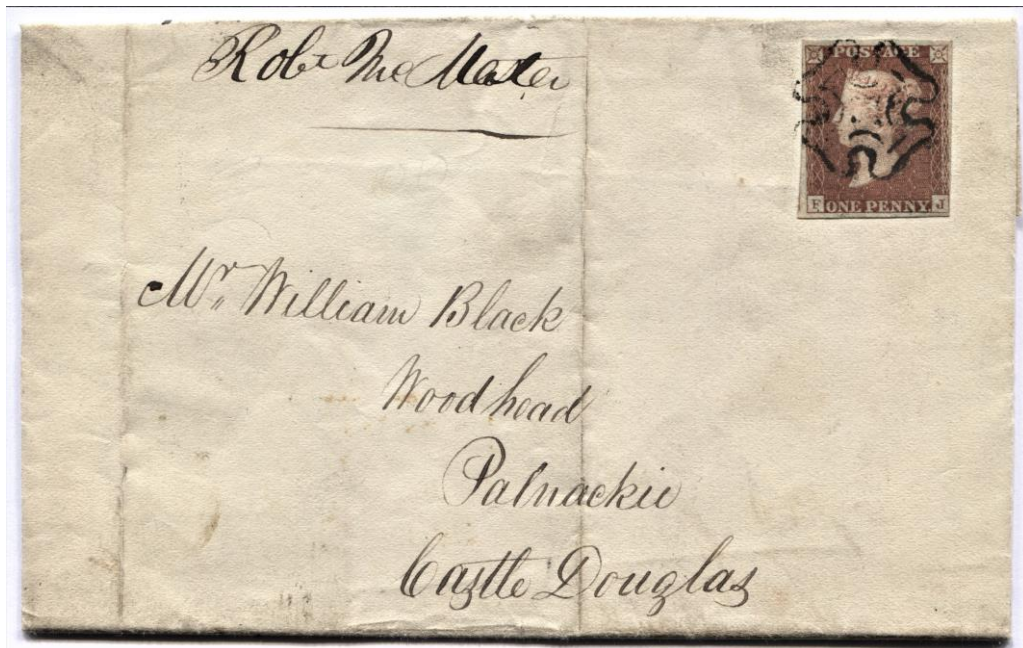 Robt McMaster
POSTAGE
F ONE PENNY J
Mr. William Black
Woodhead
Palnackie
Castle Douglas